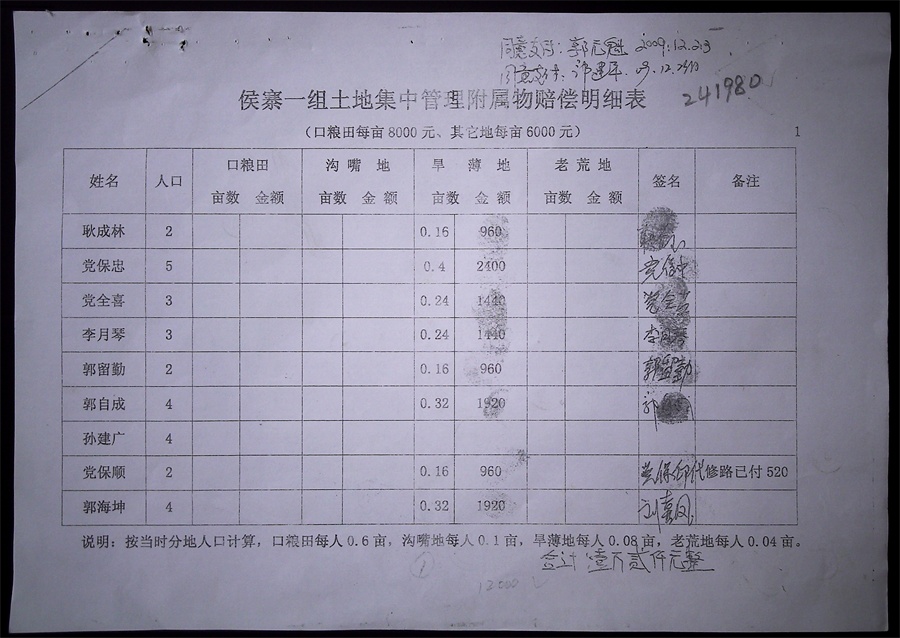 同意支付：郭元魁 2009.12.23
同意支付：郭建平. 09.12.23日
241980
侯寨一组土地集中管理附属物赔偿明细表
（口粮田每亩8000元、其它地每亩6000元） 1
姓名 人口 口粮田 沟嘴地 旱薄地 老荒地 签名 备注
亩数 金额 亩数 金额 亩数 金额 亩数 金额
耿成林 2 0.16 960
党保忠 5 0.4 2400 党保忠
党全喜 3 0.24 1440 党全喜
李月琴 3 0.24 1440 李月琴
郭留勤 2 0.16 960 郭留勤
郭自成 4 0.32 1920 郭
孙建广 4
党保顺 2 0.16 960 党保仰代 修路已付520
郭海坤 4 0.32 1920 刘喜凤
说明：按当时分地人口计算，口粮田每人0.6亩，沟嘴地每人0.1亩，旱薄地每人0.08亩，老荒地每人0.04亩。
合计 壹万贰仟元整
①
12000